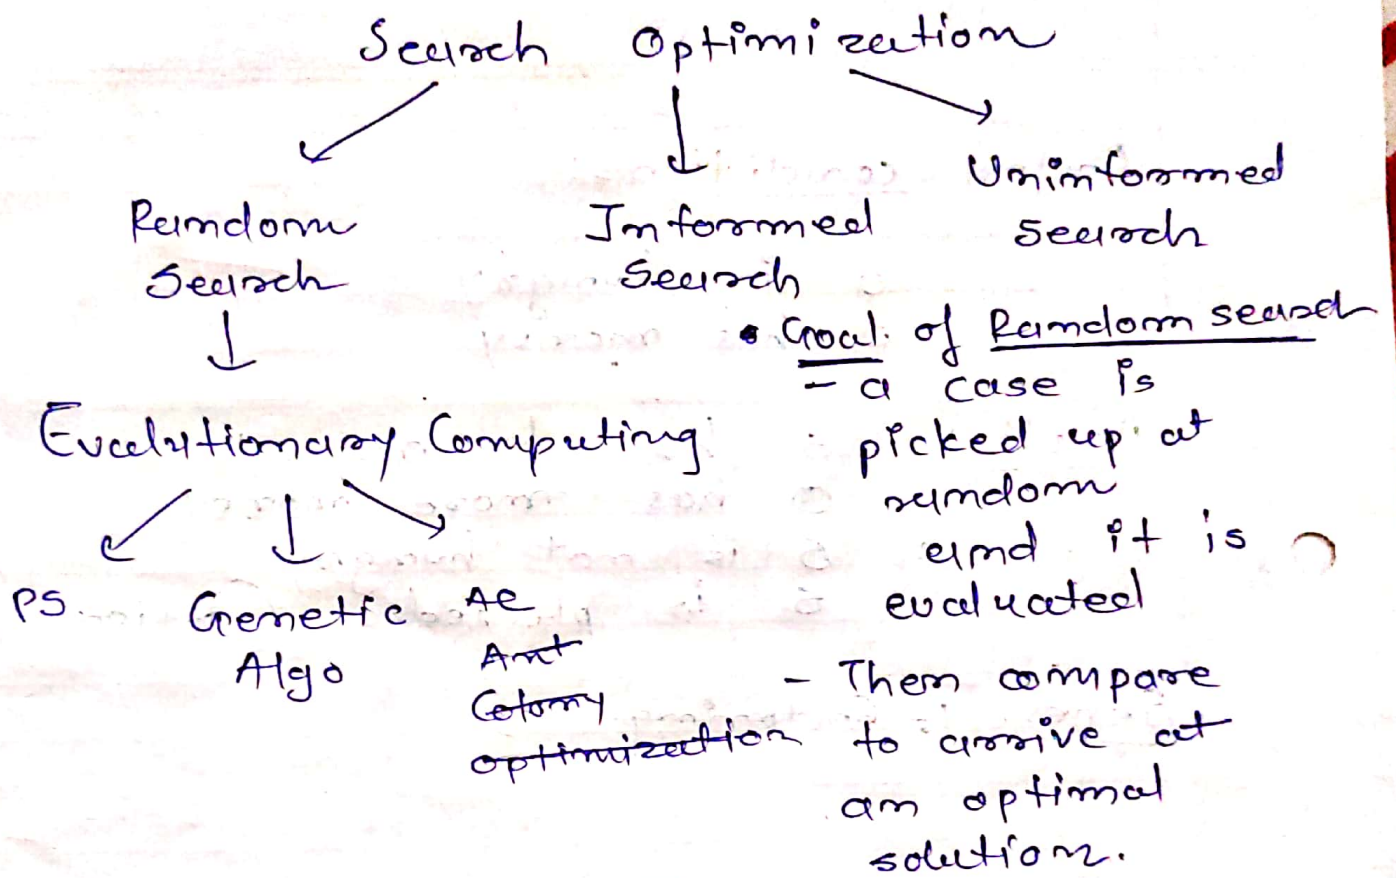 Search Optimization
Random
Search
Informed
Search
Uninformed
Search
Evolutionary Computing
PS
Genetic
Algo
AC
Ant
Colony
optimization
• Goal of Random search
- a case is
picked up at
random
and it is
evaluated
- Then compare
to arrive at
an optimal
solution.